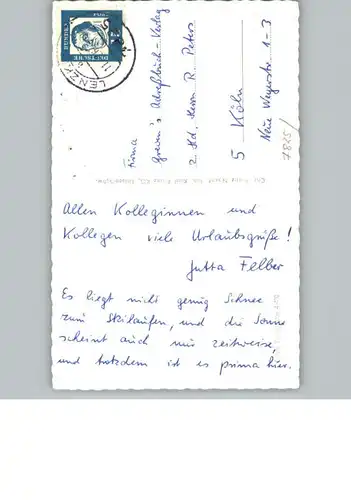 DEUTSCHE
LENZK
Firma
Greven's Adreßbuch-Verlag
z. Hd. Herrn R. Peters
5 Köln
Neue Weyerstr. 1-3
7825/
Allen Kolleginnen und
Kollegen viele Urlaubsgrüße!
Jutta Felber
Es liegt nicht genug Schnee
zum Skilaufen, und die Sonne
scheint auch nur zeitweise,
und trotzdem ist es prima hier.